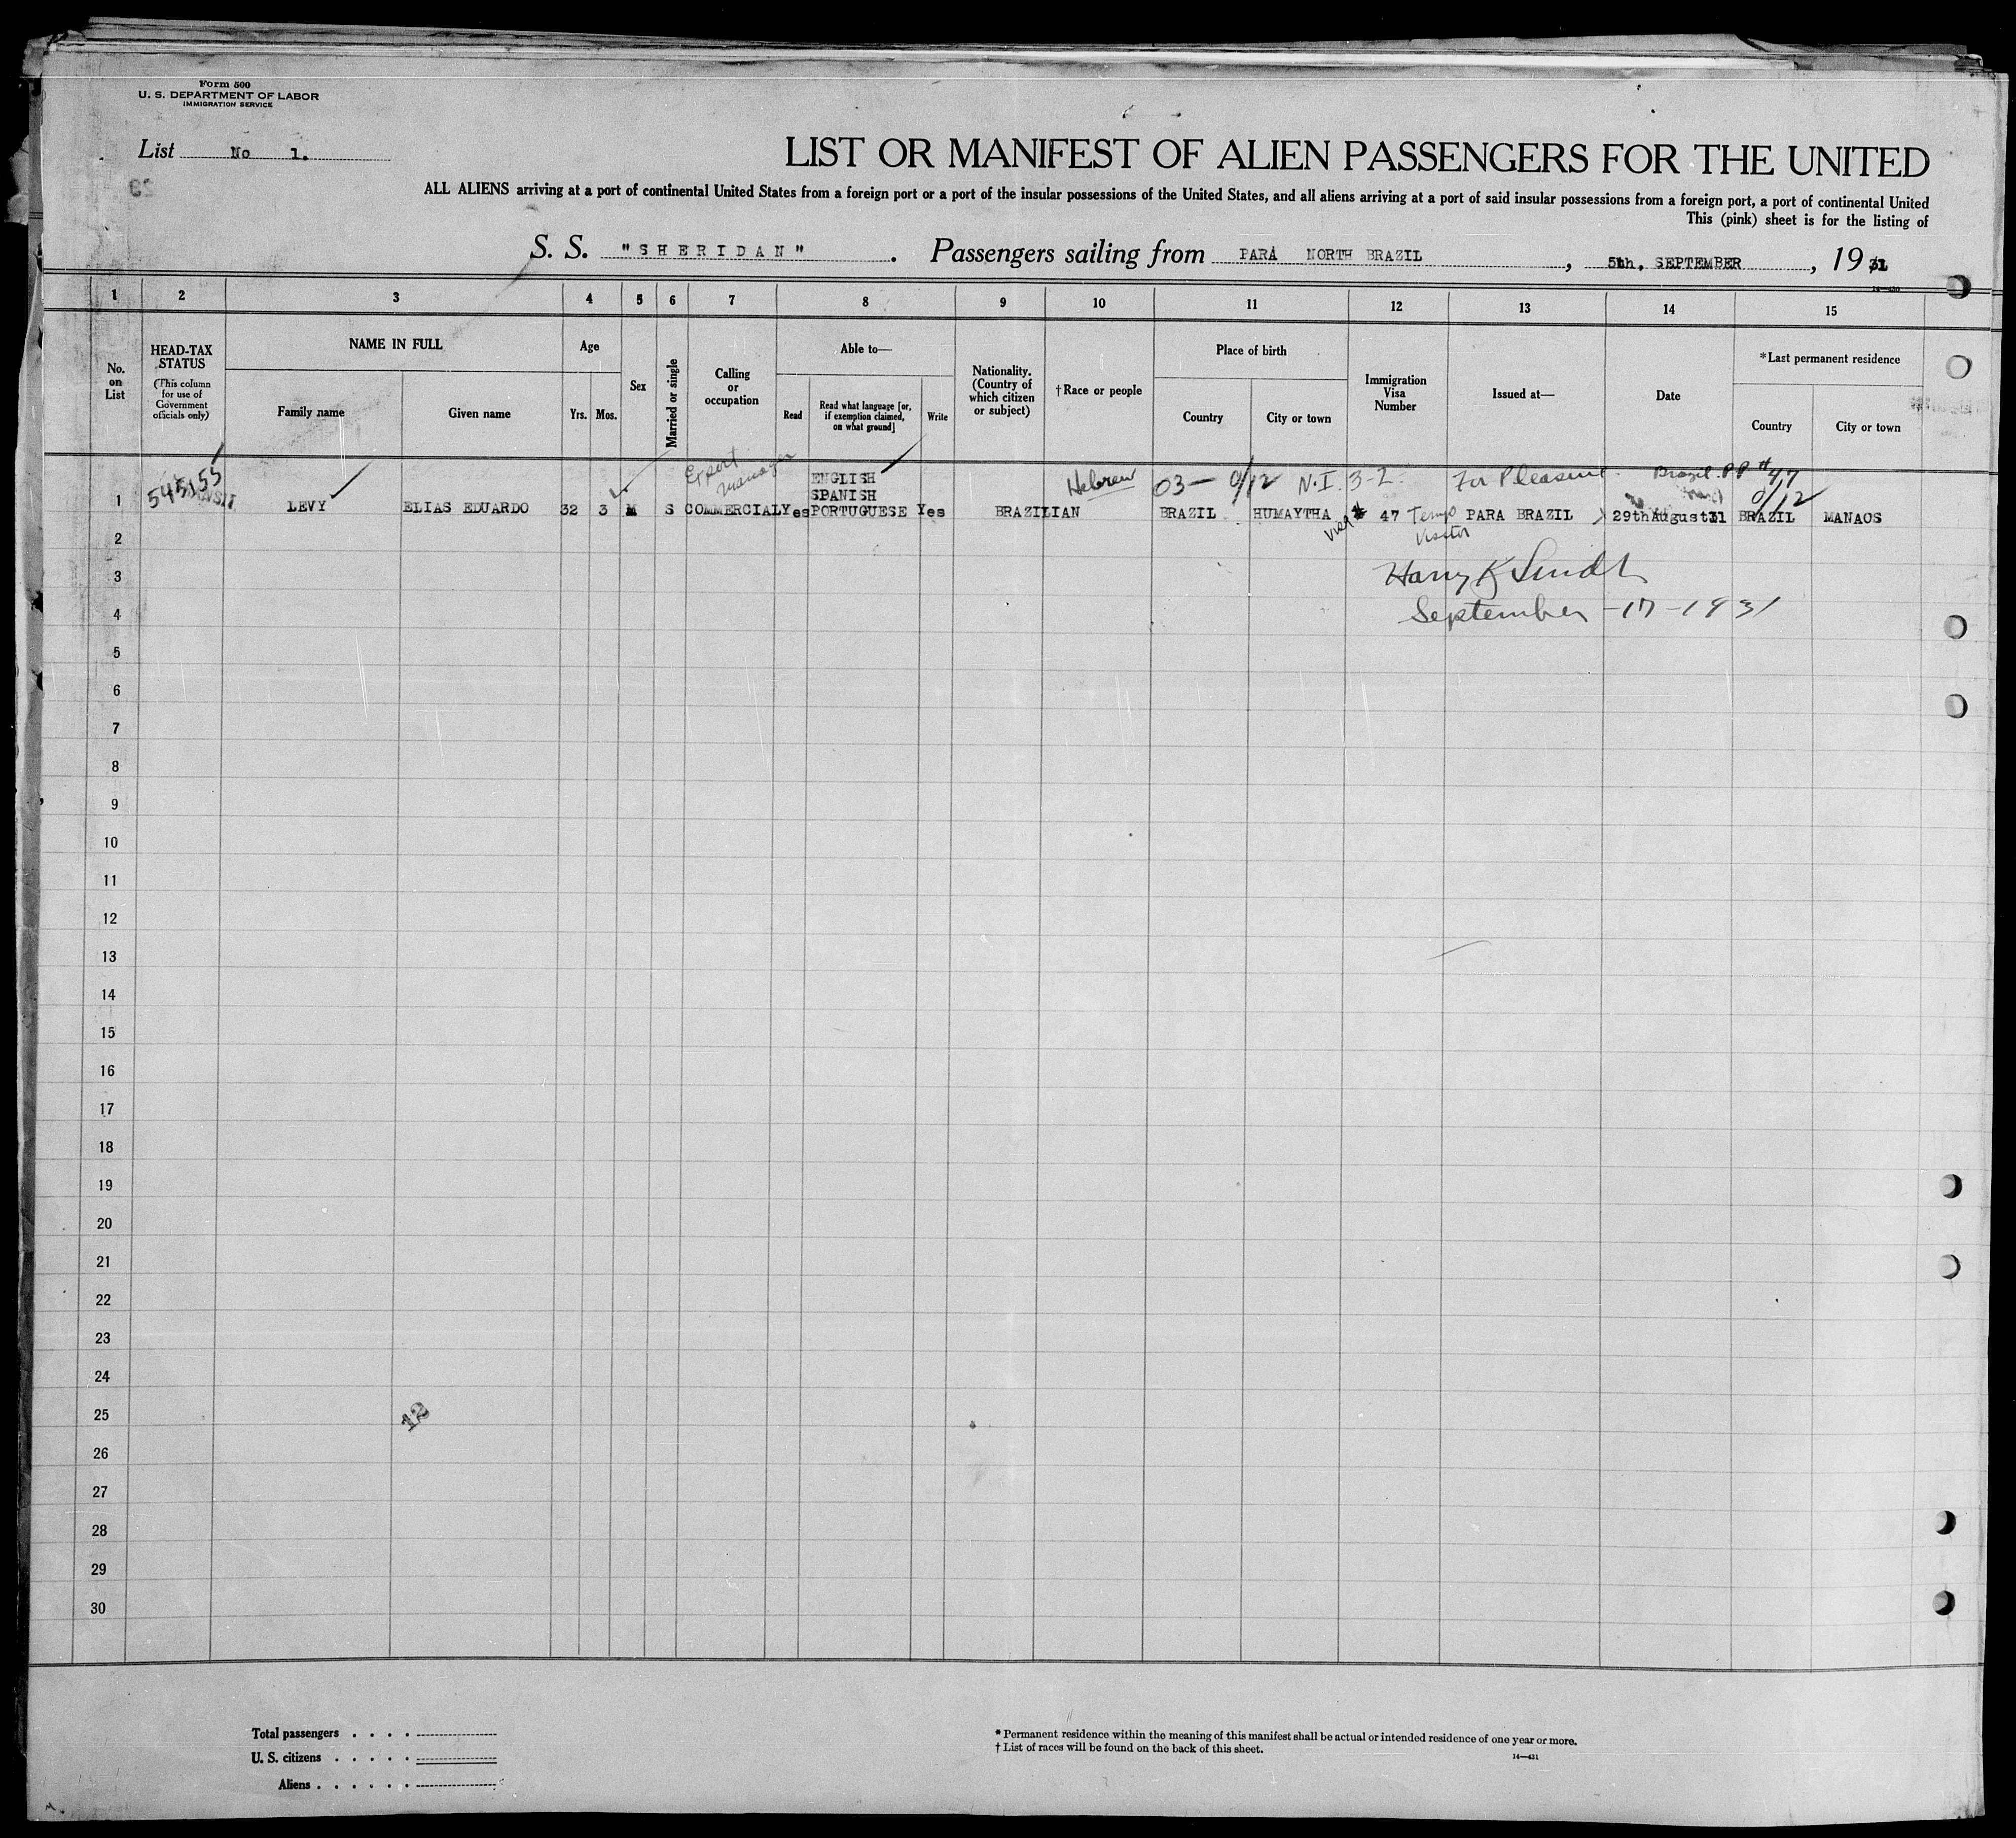 Form 500
U. S. DEPARTMENT OF LABOR
IMMIGRATION SERVICE
List No 1.
LIST OR MANIFEST OF ALIEN PASSENGERS FOR THE UNITED
ALL ALIENS arriving at a port of continental United States from a foreign port or a port of the insular possessions of the United States, and all aliens arriving at a port of said insular possessions from a foreign port, a port of continental United
This (pink) sheet is for the listing of
S. S. "SHERIDAN". Passengers sailing from PARÁ NORTH BRAZIL, 5th, SEPTEMBER, 1931
1 2 3 4 5 6 7 8 9 10 11 12 13 14 15
No. on List
HEAD-TAX STATUS
(This column for use of Government officials only)
NAME IN FULL
Family name
Given name
Age
Yrs.
Mos.
Sex
Married or single
Calling or occupation
Able to—
Read
Read what language [or, if exemption claimed, on what ground]
Write
Nationality. (Country of which citizen or subject)
†Race or people
Place of birth
Country
City or town
Immigration Visa Number
Issued at—
Date
*Last permanent residence
Country
City or town
Export Manager
ENGLISH
SPANISH
Hebrew 03— 0/12 N.I. 3-2. For Pleasure Brazil. PP #47
0/12
1 545155 LEVY ELIAS EDUARDO 32 3 M S COMMERCIAL Yes PORTUGUESE Yes BRAZILIAN BRAZIL HUMAYTHA Visa # 47 Temp Visitor PARA BRAZIL 29th August 31 BRAZIL MANAOS
2
3 Harry K
4 September -17-1931
5
6
7
8
9
10
11
12
13
14
15
16
17
18
19
20
21
22
23
24
25
26
27
28
29
30
Total passengers . . . .
U. S. citizens . . . . .
Aliens . . . . . .
* Permanent residence within the meaning of this manifest shall be actual or intended residence of one year or more.
† List of races will be found on the back of this sheet.
14—431